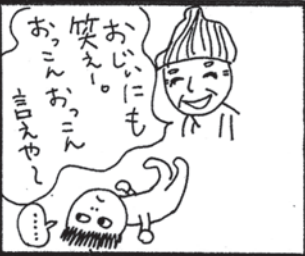 おじぃにも
笑えー。
おっこん おっこん
言えや〜
……